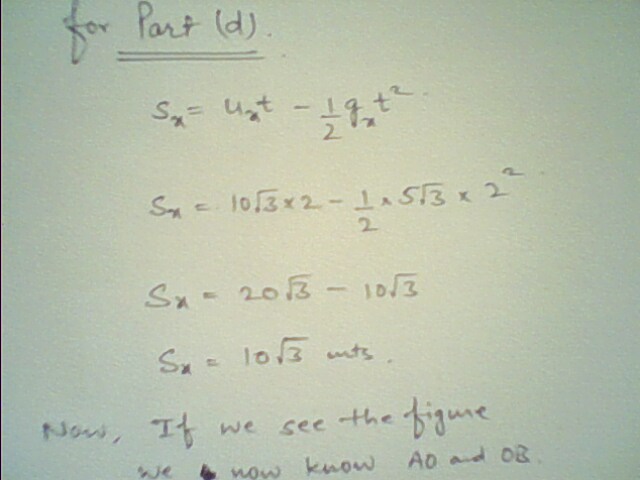 for Part (d).
Sx = uxt - 1/2 gxt²
Sx = 10√3 × 2 - 1/2 × 5√3 × 2²
Sx = 20√3 - 10√3
Sx = 10√3 mts.
Now, If we see the figure
we now know AO and OB.